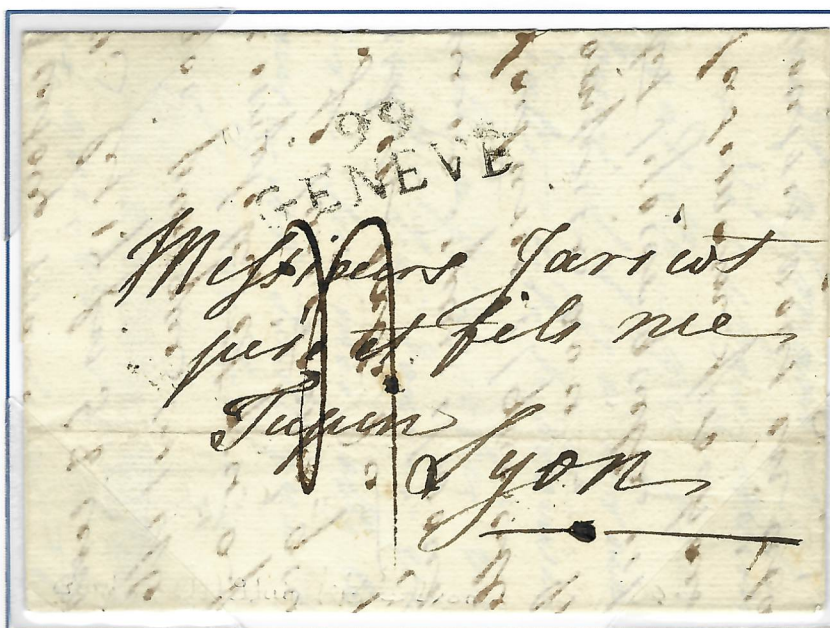 99
GENEVE
Messieurs Jaricot
père et fils rue
Tupin
Lyon